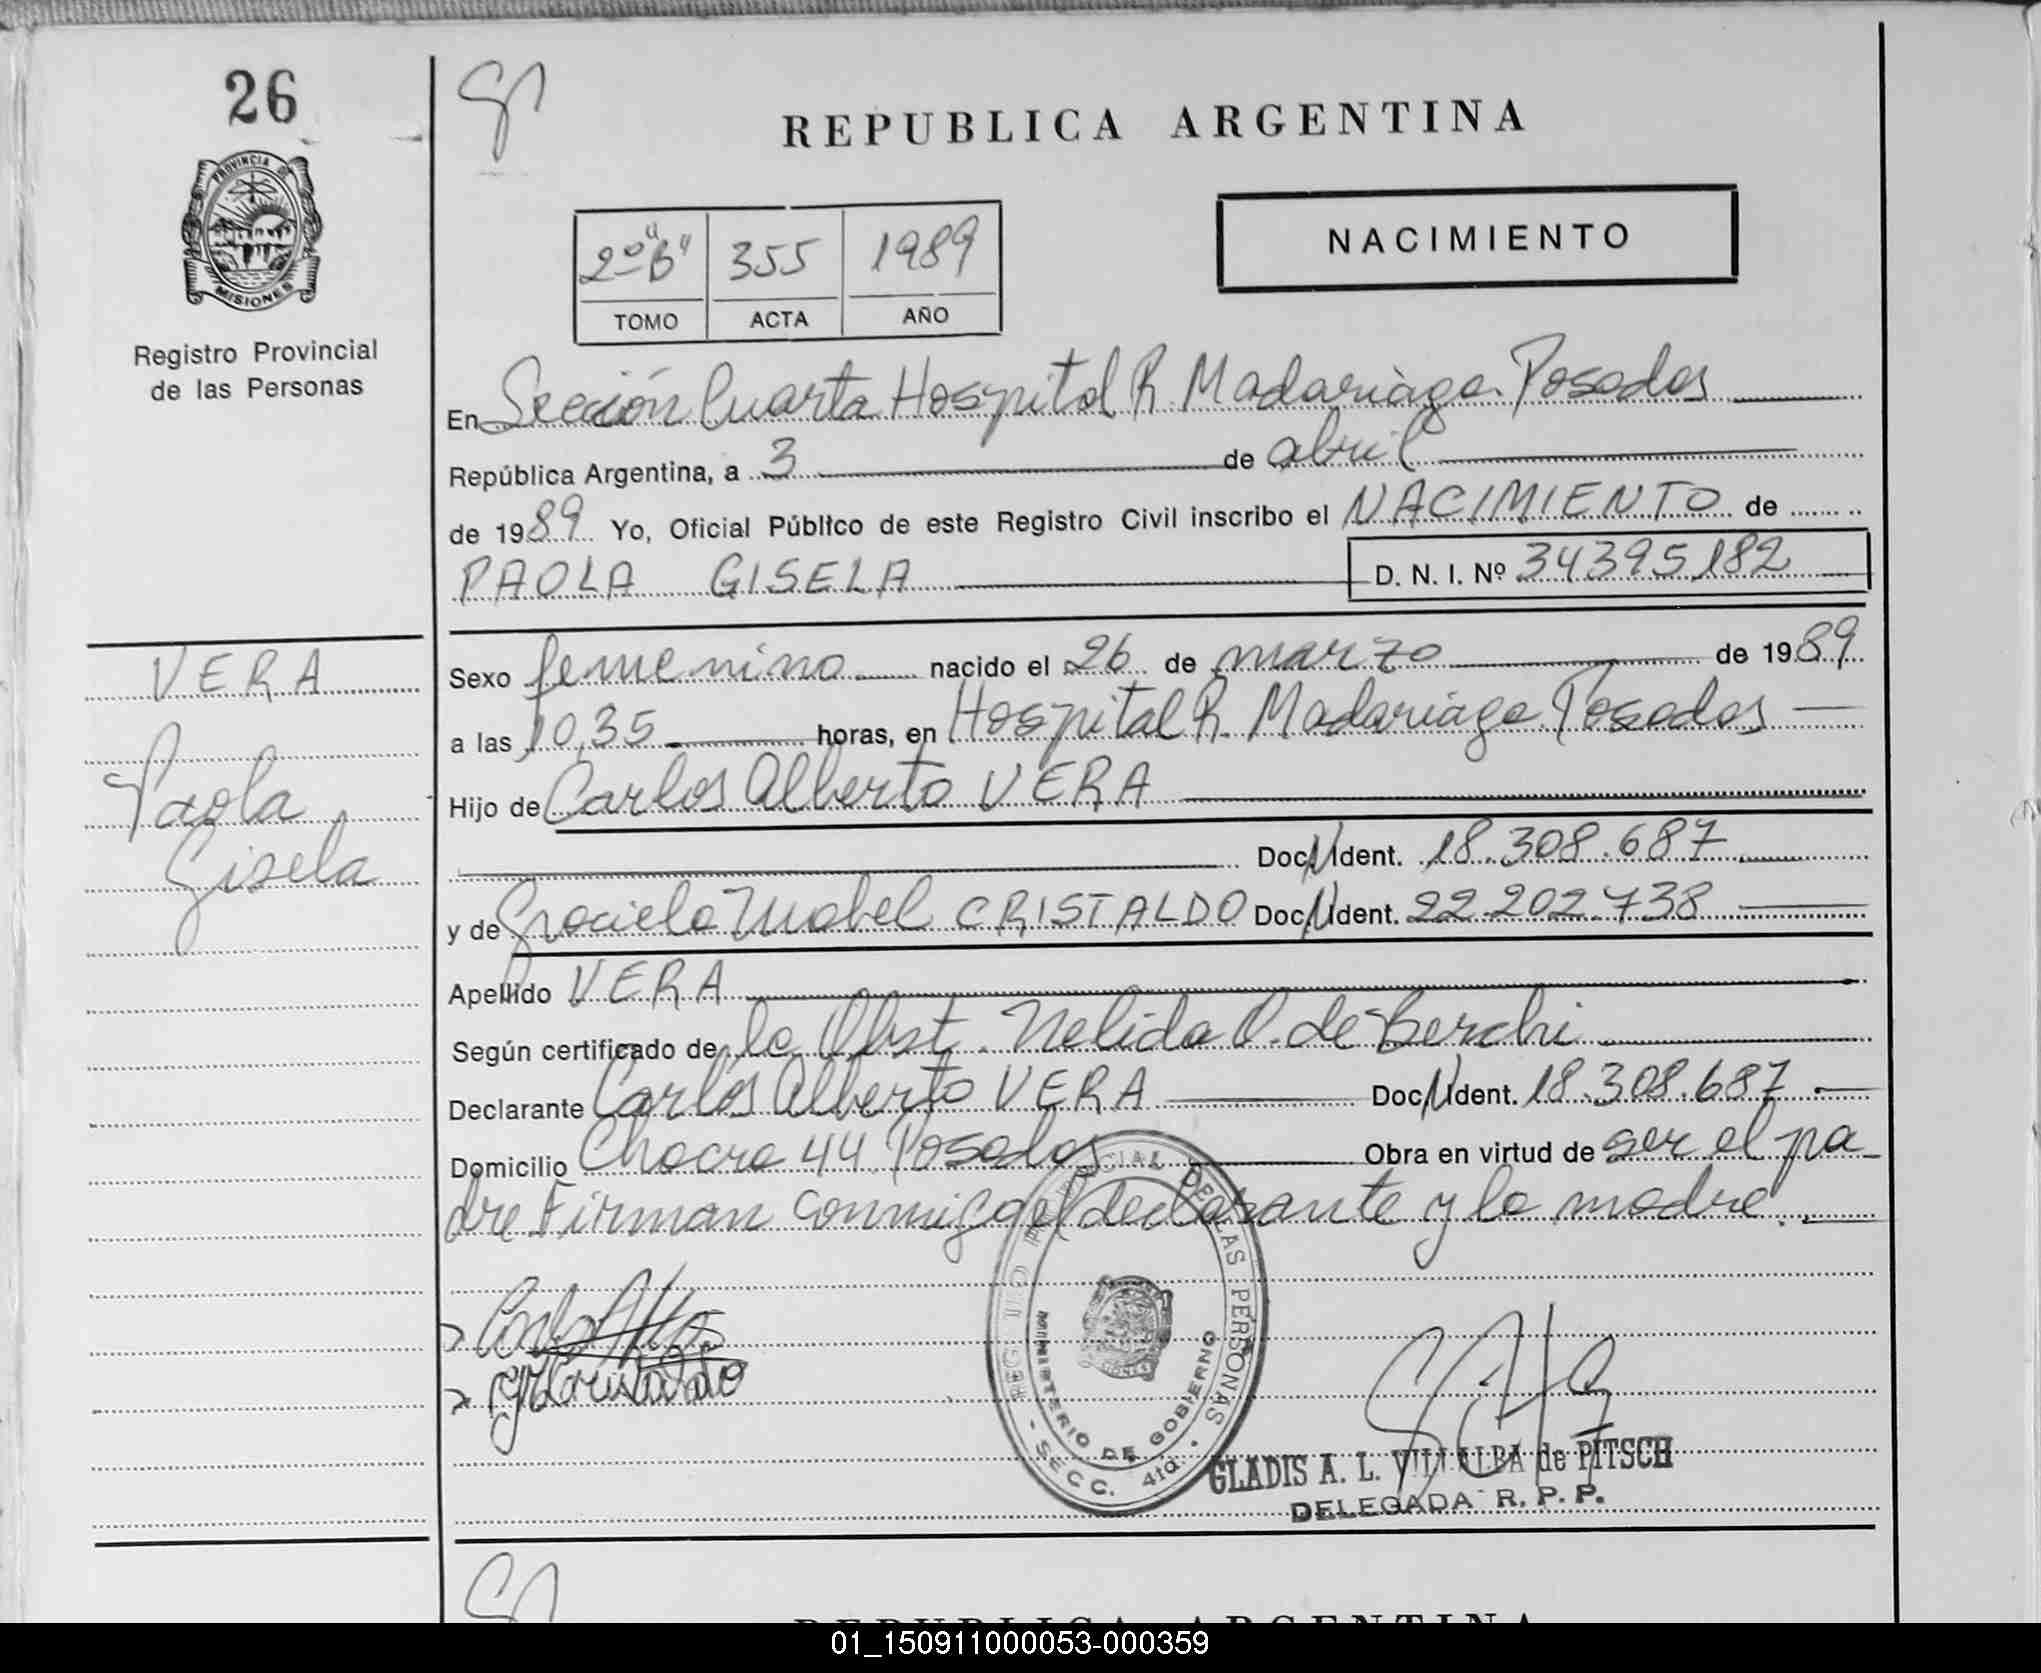 26
REPUBLICA ARGENTINA
PROVINCIA DE
MISIONES
Registro Provincial
de las Personas
2º "B" 355 1989
TOMO ACTA AÑO
NACIMIENTO
En Sección Cuarta Hospital R. Madariaga. Posadas
República Argentina, a 3 de abril
de 1989 Yo, Oficial Público de este Registro Civil inscribo el NACIMIENTO de
PAOLA GISELA D. N. I. Nº 34395182
VERA
Paola
Gisela
Sexo femenino nacido el 26 de marzo de 1989
a las 10,35 horas, en Hospital R. Madariaga. Posadas
Hijo de Carlos Alberto VERA
Doc. Ident. 18.308.687
y de Graciela Mabel CRISTALDO Doc. Ident. 22.202.738
Apellido VERA
Según certificado de la Obst. Nelida O. de Berchi
Declarante Carlos Alberto VERA Doc. Ident. 18.308.687
Domicilio Chacra 44 Posadas Obra en virtud de ser el pa-
dre Firman conmigo el declarante y la madre.
REGISTRO PROVINCIAL DE LAS PERSONAS
MINISTERIO DE GOBIERNO
SECC. 4ta.
GLADIS A. L. VILLALBA de PITSCH
DELEGADA R. P. P.
REPUBLICA ARGENTINA
01_150911000053-000359